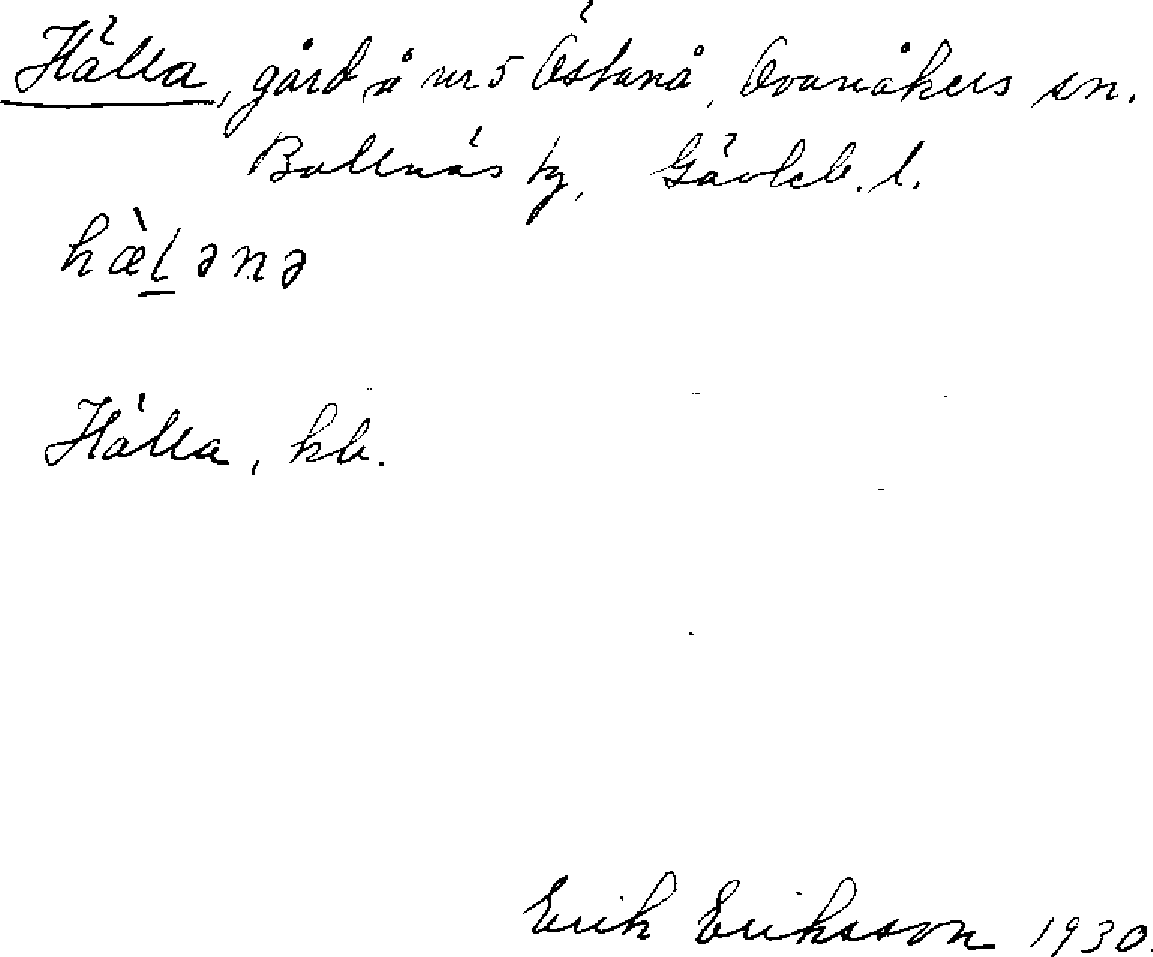 Hälla, gård å nr 5 Östanå, Ovanåkers sn.
Bollnäs tg, Gävleb. l.
hæ̀l̲ənə
Hälla, kb.
Erik Eriksson 1930.